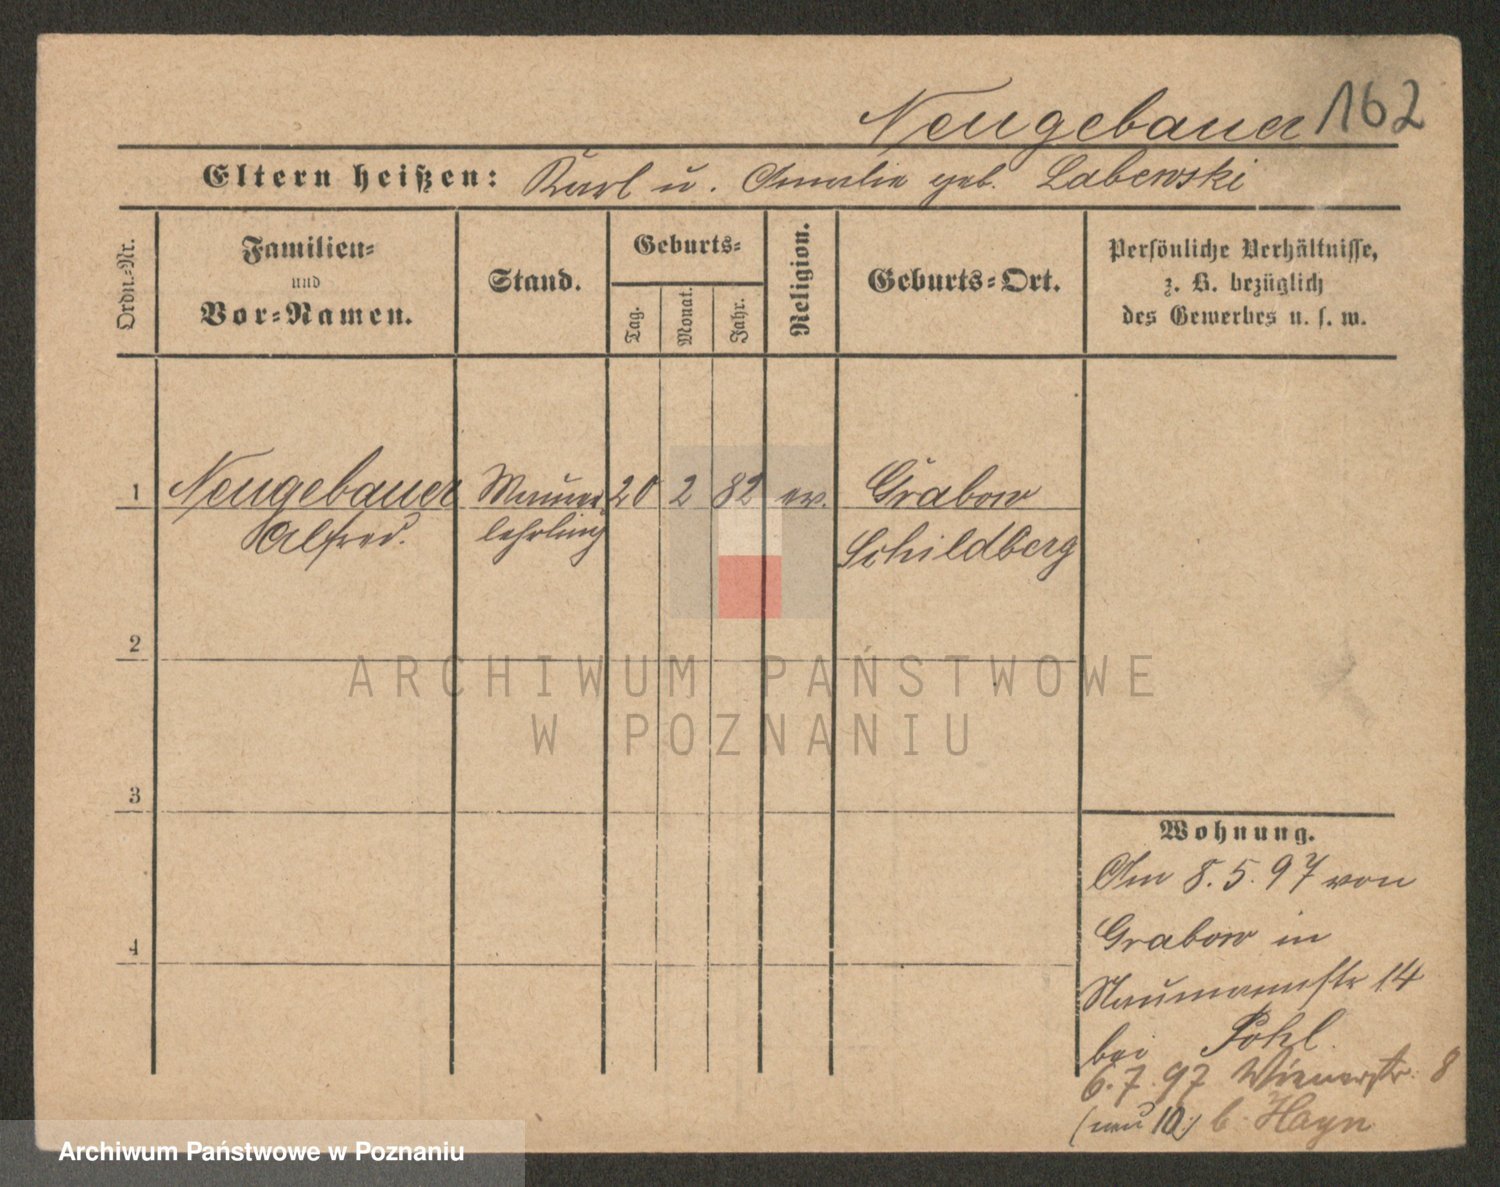 Neugebauer 162
Eltern heißen: Karl u. Amalie geb. Labewski
Ordn.-Nr.
Familien-
und
Vor-Namen.
Stand.
Geburts-
Tag.
Monat.
Jahr.
Religion.
Geburts-Ort.
Persönliche Verhältnisse,
z. B. bezüglich
des Gewerbes u. s. w.
1 Neugebauer Maurer 20 2 82 ev. Grabow
Alfred. lehrling Schildberg
2
ARCHIWUM PAŃSTWOWE
W POZNANIU
3
Wohnung.
Am 8.5.97 von
4 Grabow in
Naumannstr 14
bei Pohl.
6.7.97 Wienerstr. 8
(neu 10) b. Hayn
Archiwum Państwowe w Poznaniu